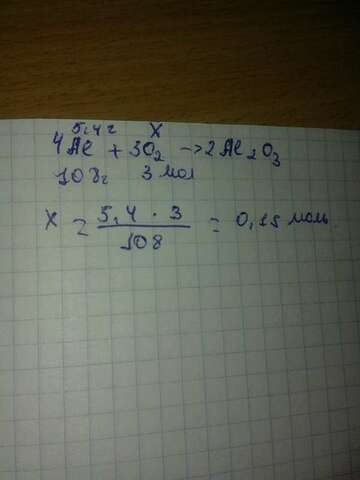 5,4г X
4Al + 3O₂ → 2Al₂O₃
108г 3 мол
X = 5,4 · 3 / 108 = 0,15 моль